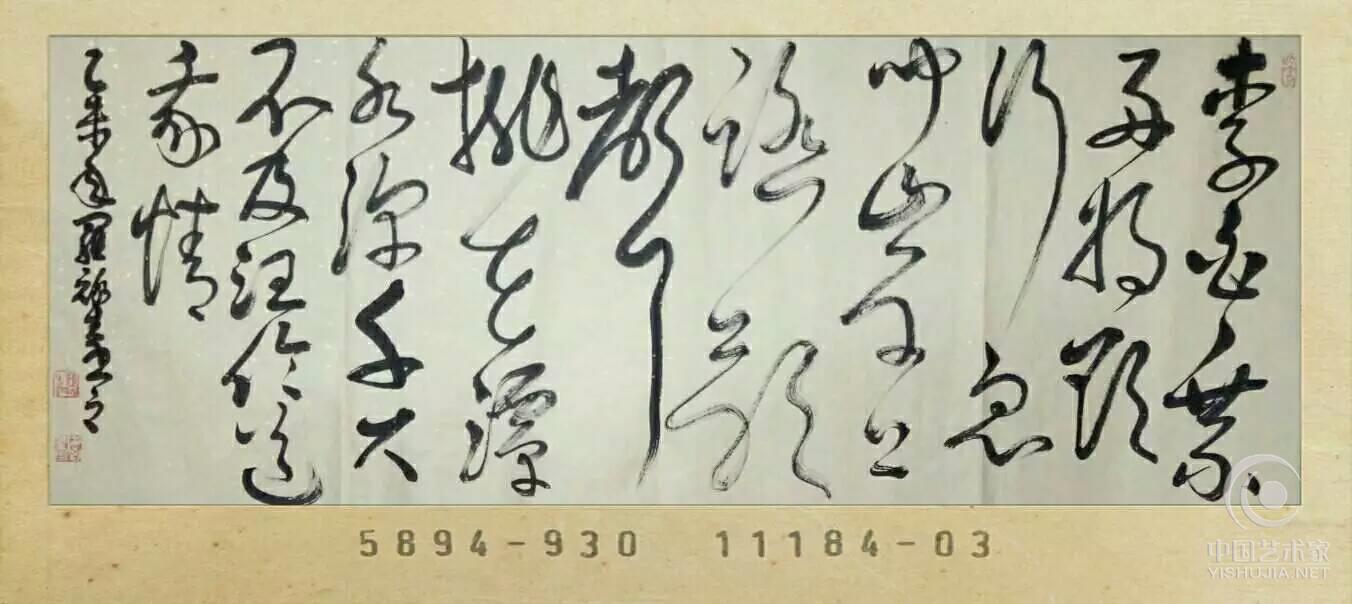 李白乘
舟將欲
行忽
聞岸上
踏歌
聲
桃花潭
水深千尺
不及汪倫送
我情
乙未年羅
5894-930 11184-03
中国艺术家
YISHUJIA.NET